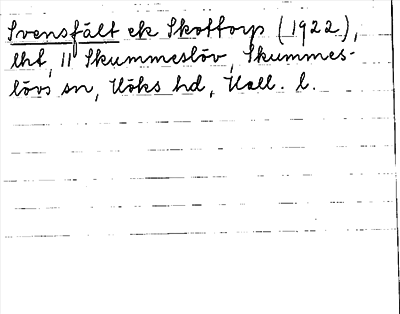 Svensfält ek Skottorp (1922),
lht, 11 Skummeslöv, Skummes-
lövs sn, Höks hd, Hall. l.